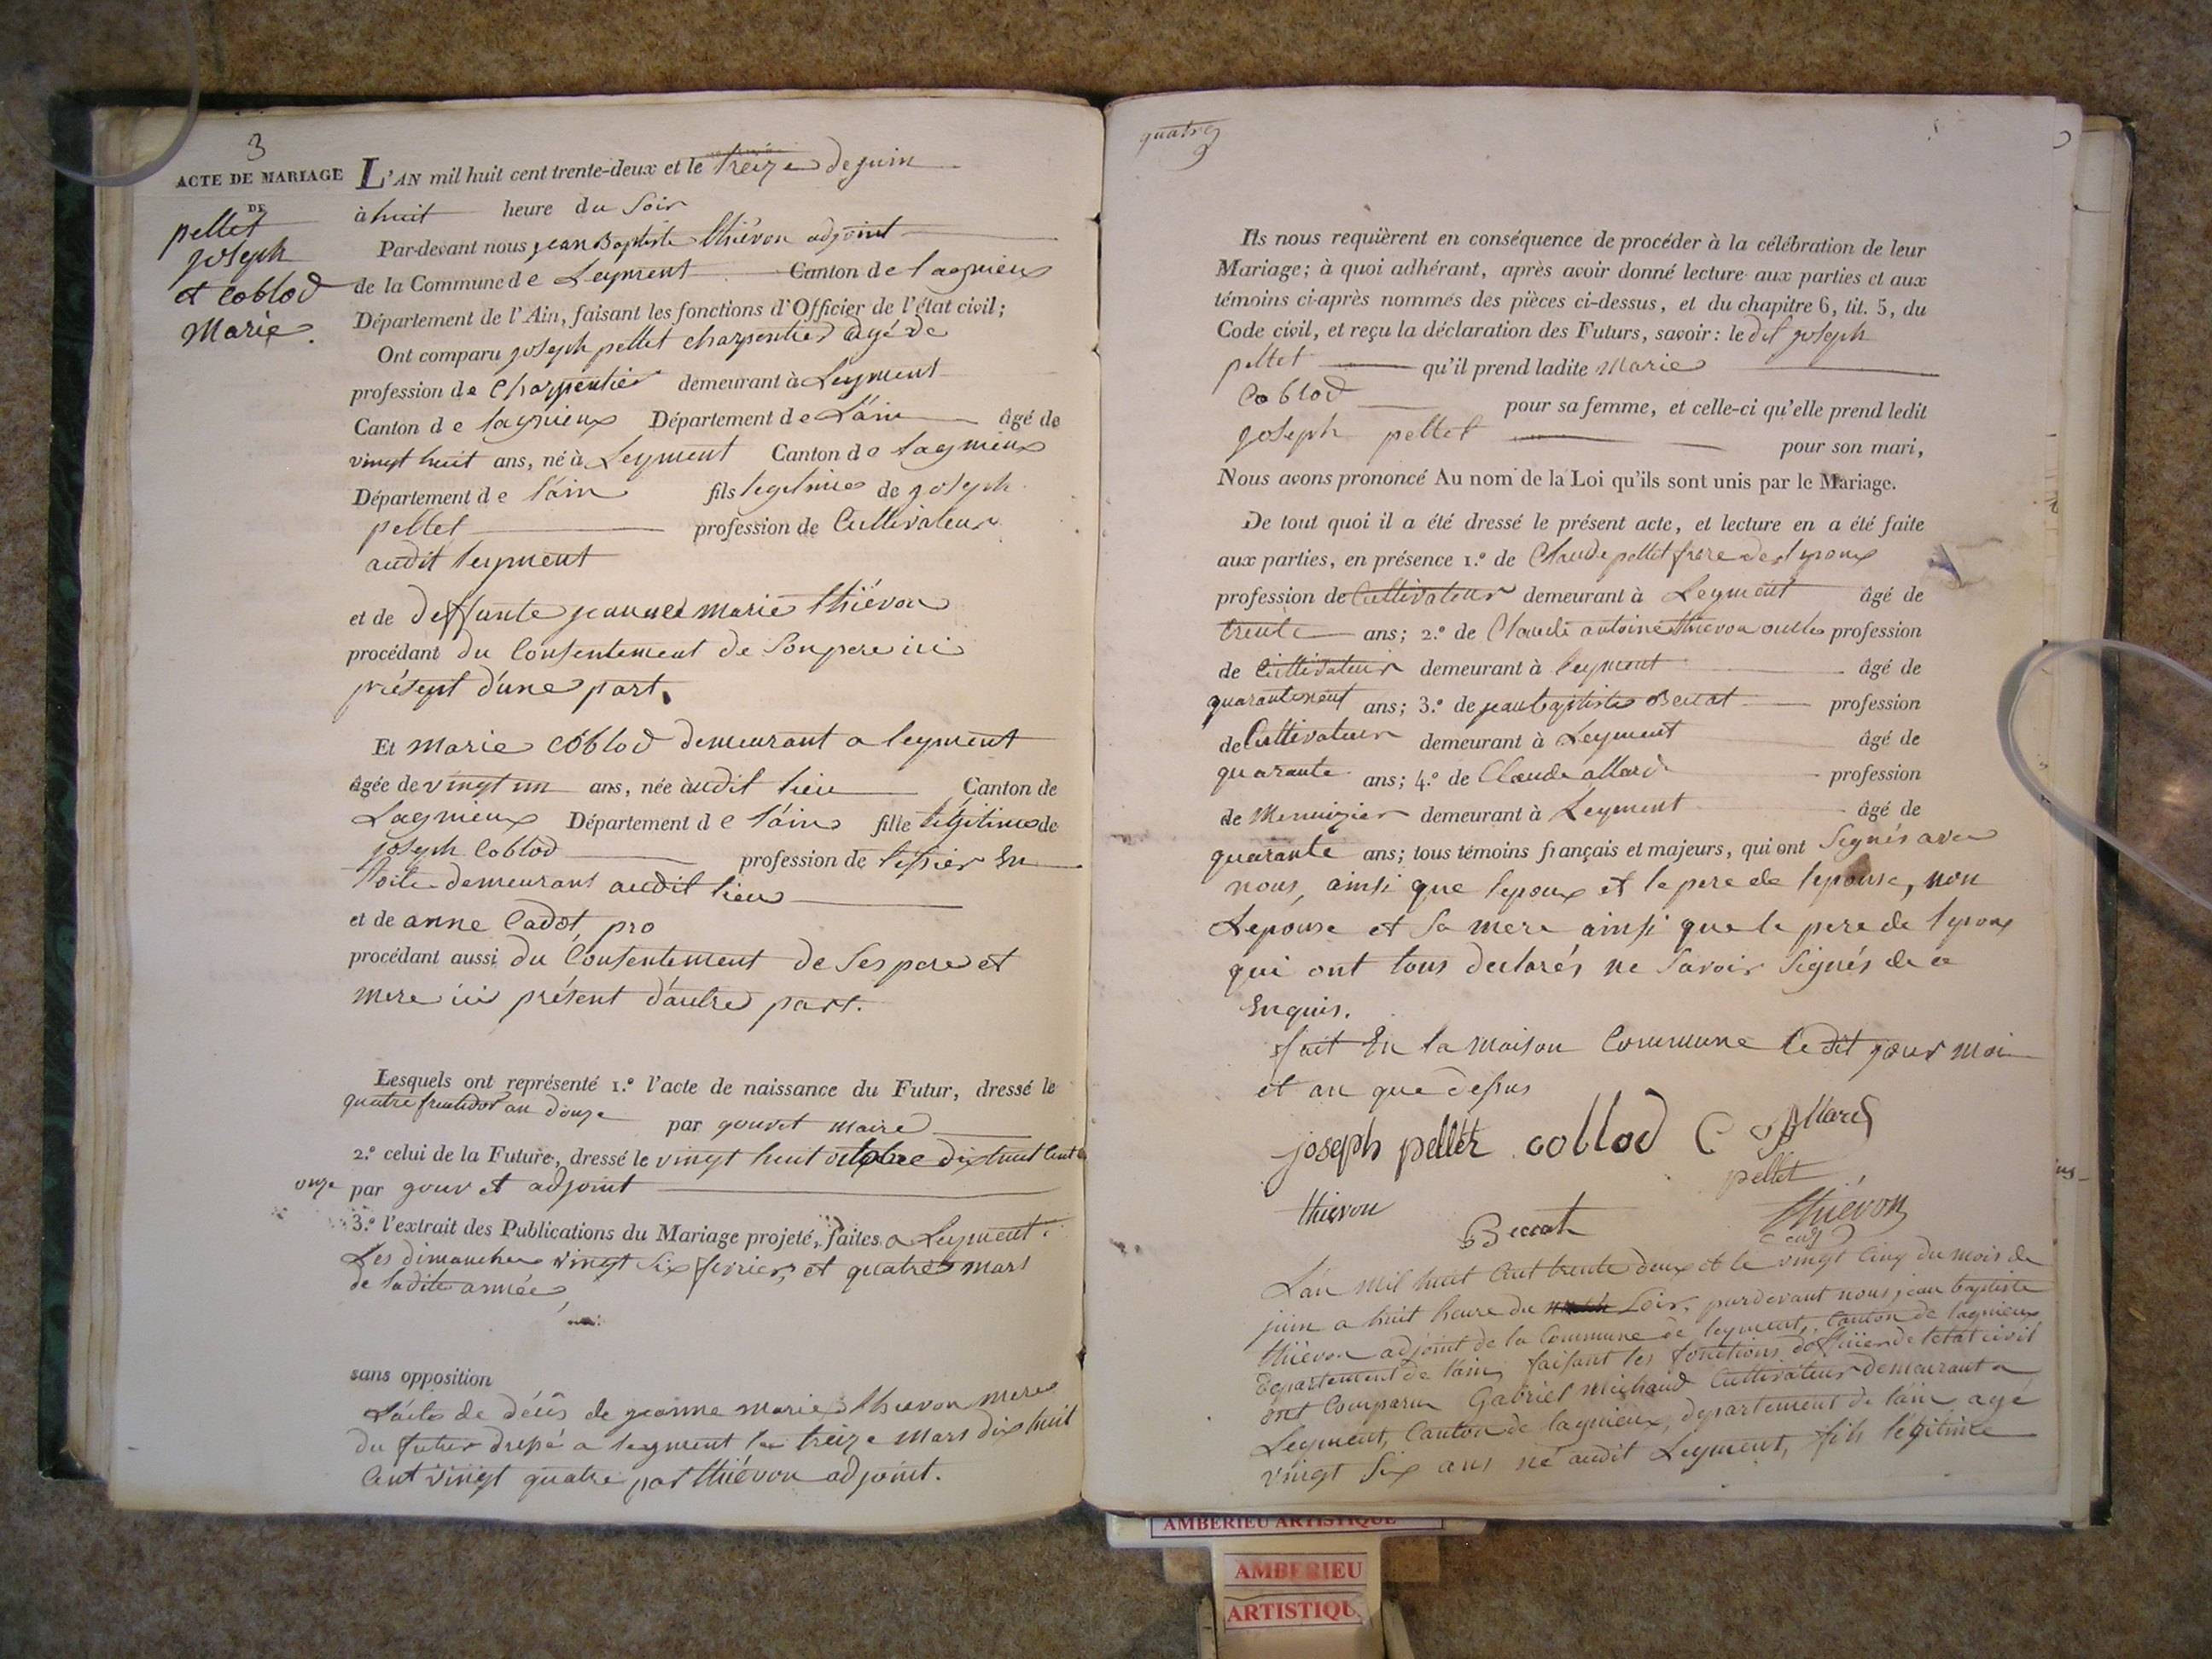 3
ACTE DE MARIAGE
DE
pellet
joseph
et Coblod
Marie.
L'AN mil huit cent trente-deux et le treize de juin
à huit heure du Soir
Par-devant nous jean Baptiste thiévon adjoint
de la Commune de Leyment Canton de lagnieux
Département de l'Ain, faisant les fonctions d'Officier de l'état civil;
Ont comparu joseph pellet charpentier agé de
profession de Charpentier demeurant à Leyment
Canton de lagnieux Département de L'ain âgé de
vingt huit ans, né à Leyment Canton de lagnieux
Département de l'ain fils legitime de joseph
pellet profession de Cultivateur
audit leyment
et de deffunte jeanne marie thiévon
procédant du Consentement de Son pere ici
présent d'une part.
Et marie Coblod demeurant a leyment
âgée de vingt un ans, née audit lieu Canton de
Lagnieux Département de l'ain fille légitime de
joseph Coblod profession de tissier En
toile demeurant audit lieu
et de anne Cadot, pro
procédant aussi du Consentement de Ses pere et
mere ici présent d'autre part.
Lesquels ont représenté 1.º l'acte de naissance du Futur, dressé le
quatre fructidor an douze par gouvet maire
2.º celui de la Future, dressé le vingt huit octobre dix huit Cent
onze par gouvet adjoint
3.º l'extrait des Publications du Mariage projeté, faites a Leyment.
Les dimanches vingt Six fevrier, et quatre mars
de ladite année
sans opposition
L'acte de décès de jeanne marie thievon mere
du futur dressé a leyment le treize mars dix huit
Cent vingt quatre par thiévon adjoint.
quatre
Ils nous requièrent en conséquence de procéder à la célébration de leur
Mariage; à quoi adhérant, après avoir donné lecture aux parties et aux
témoins ci-après nommés des pièces ci-dessus, et du chapitre 6, tit. 5, du
Code civil, et reçu la déclaration des Futurs, savoir: le dit joseph
pellet qu'il prend ladite Marie
Coblod pour sa femme, et celle-ci qu'elle prend ledit
joseph pellet pour son mari,
Nous avons prononcé Au nom de la Loi qu'ils sont unis par le Mariage.
De tout quoi il a été dressé le présent acte, et lecture en a été faite
aux parties, en présence 1.º de Claude pellet frere de lepoux
profession de Cultivateur demeurant à Leyment âgé de
trente ans; 2.º de Claude antoine thievon oncle profession
de Cultivateur demeurant à leyment âgé de
quarante neuf ans; 3.º de jean baptiste Beccat profession
de Cultivateur demeurant à Leyment âgé de
quarante ans; 4.º de Claude allard profession
de Menuizier demeurant à Leyment âgé de
quarante ans; tous témoins français et majeurs, qui ont Signés avec
nous, ainsi que lepoux et le pere de lepouse, non
Lepouse et Sa mere ainsi que le pere de lepoux
qui ont tous declarés ne Savoir Signés de ce
Enquis.
fait En la maison Commune ledit jour moi
et an que dessus
joseph pellet coblod C Allard
pellet
thievon Beccat thiévon
adj
L'an mil huit Cent trente deux et le vingt Cinq du mois de
juin a huit heure du Soir, pardevant nous jean baptiste
thiévon adjoint de la Commune de leyment, Canton de lagnieux
departement de l'ain, faisant les fonctions dofficier de letat civil
ont Comparu Gabriel Michaud Cultivateur demeurant a
Leyment, Canton de lagnieux, departement de l'ain agé
vingt Six ans né audit Leyment, fils légitime
AMBERIEU ARTISTIQUE
AMBERIEU
ARTISTIQU